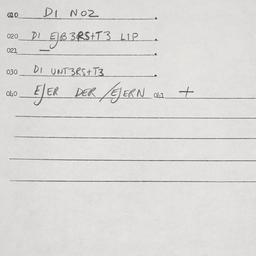 010 DI NOZ.
020 DI EJB3RST+T3 LIP.
021
030 DI UNT3RS+T3.
040 EJER DER/EJERN 041 +